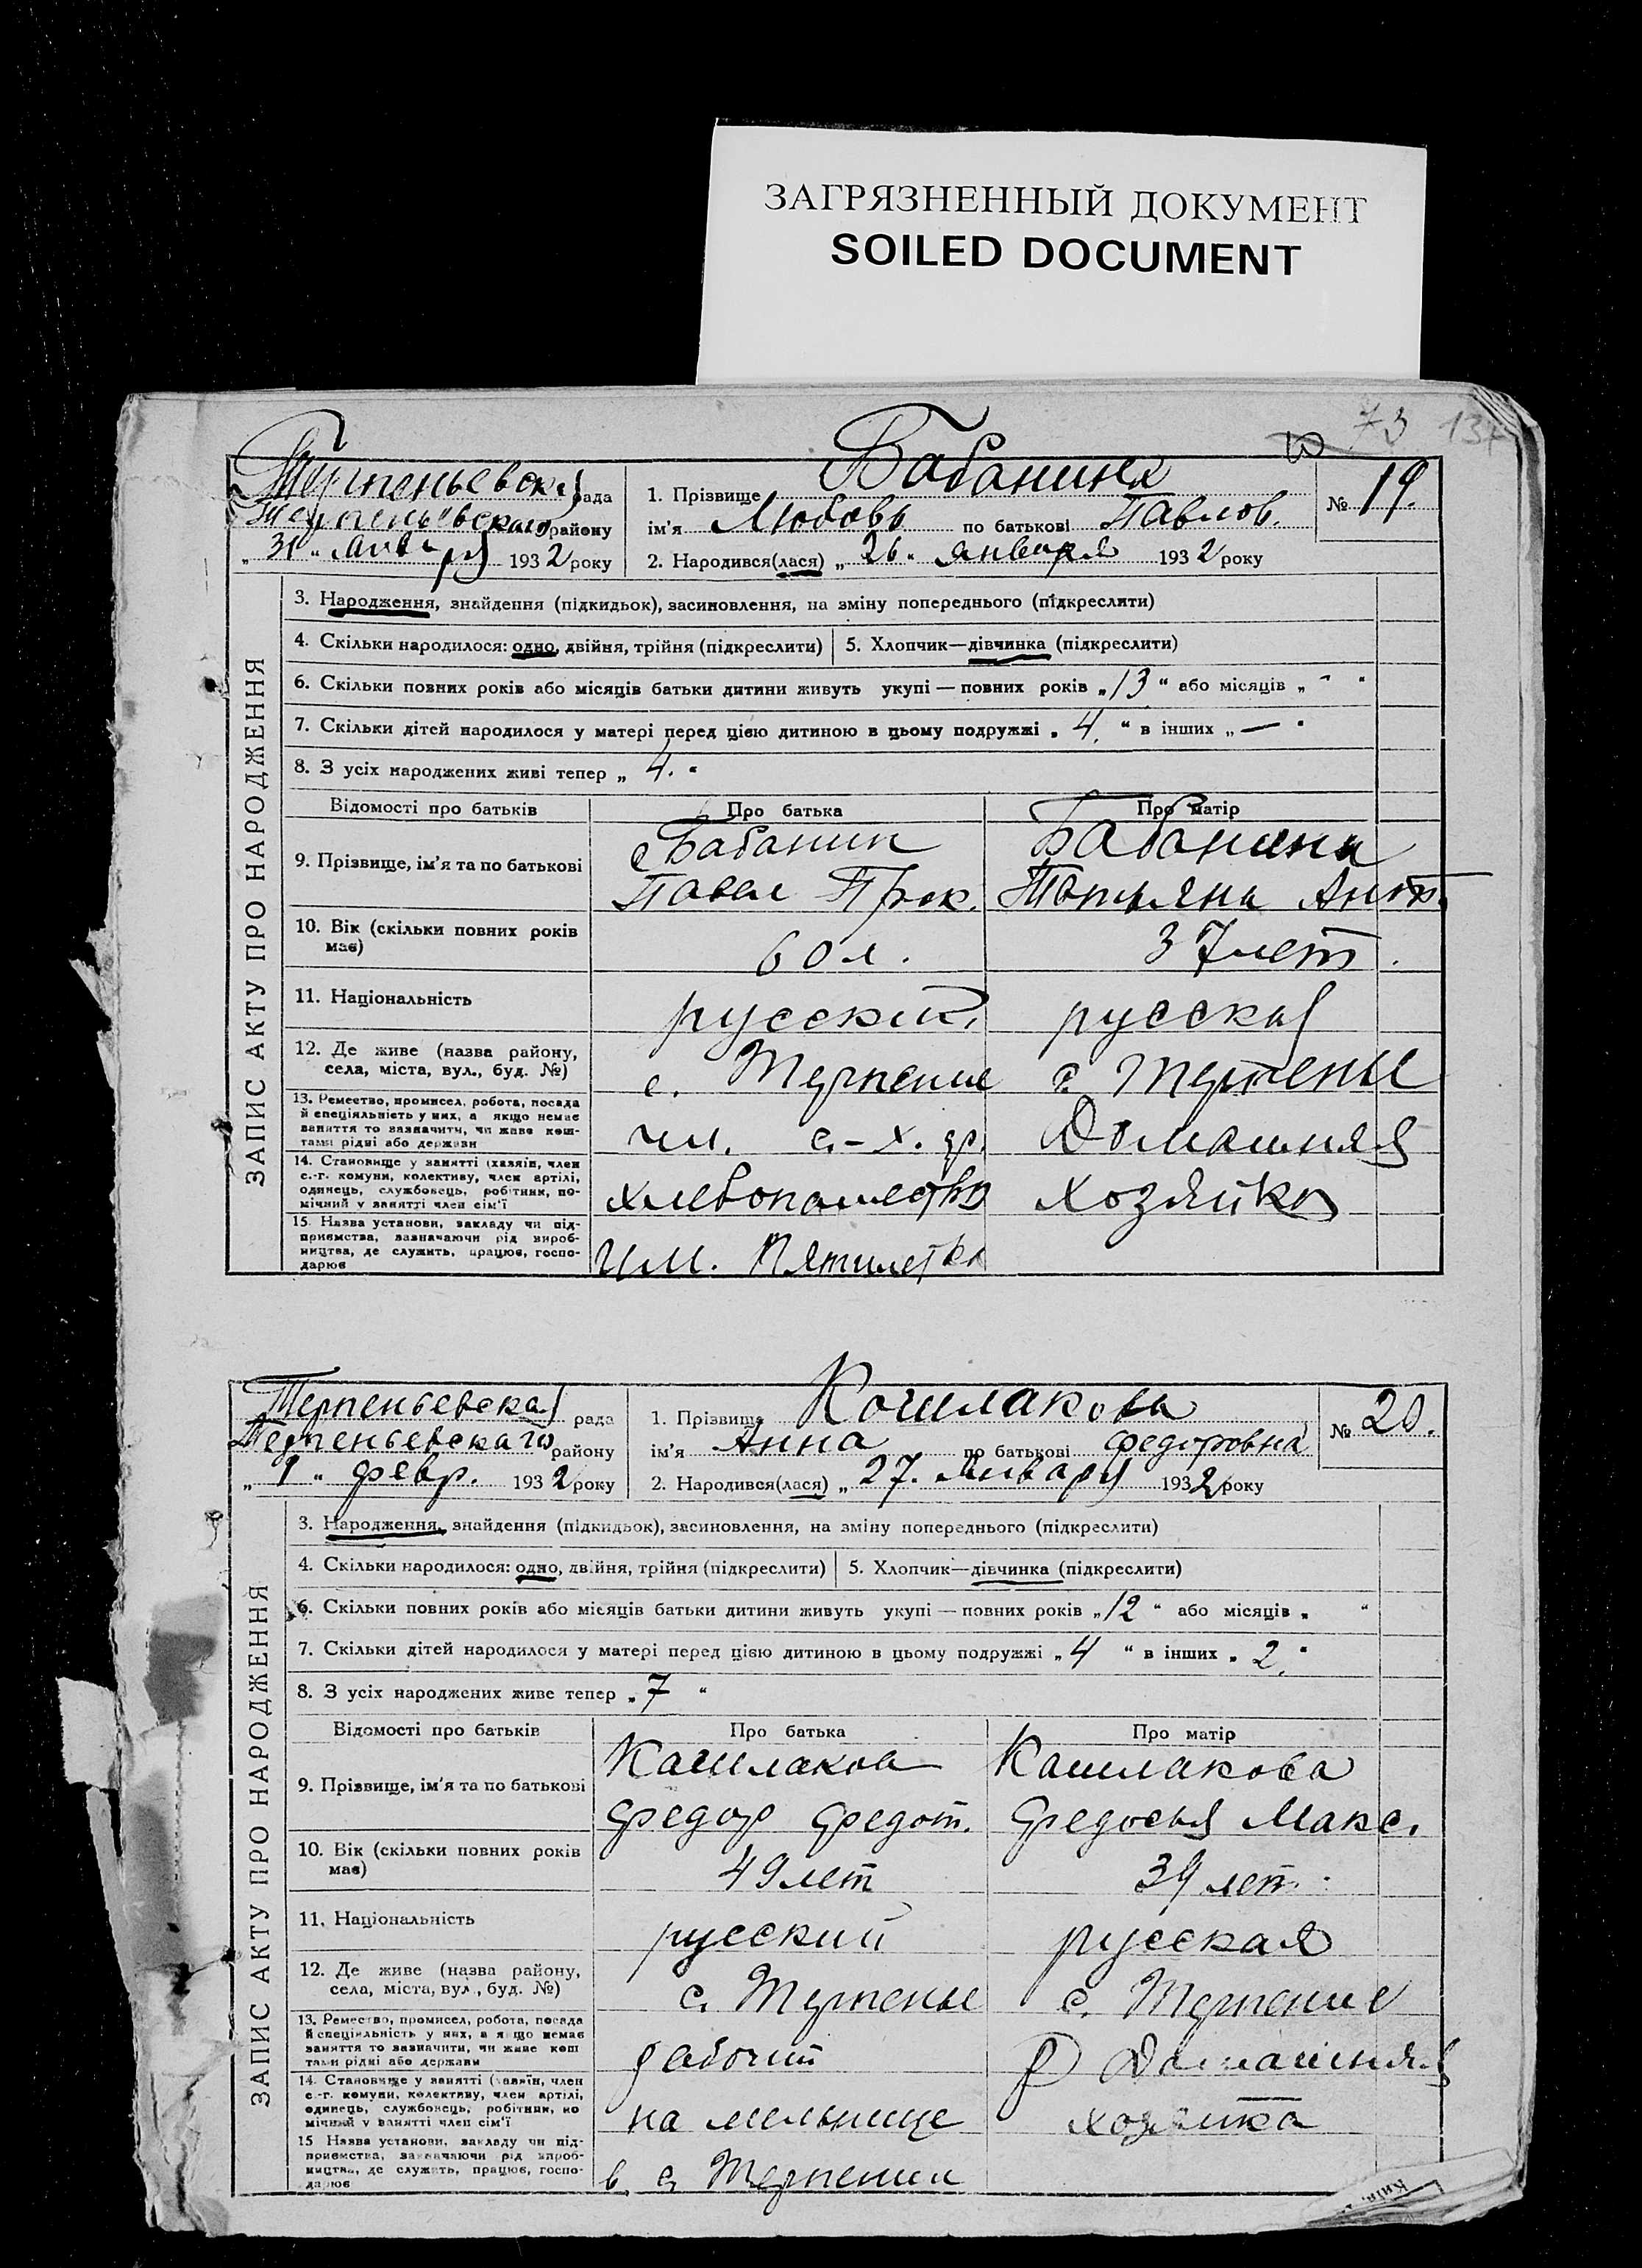 ЗАГРЯЗНЕННЫЙ ДОКУМЕНТ
SOILED DOCUMENT
73 137
Терпеньевская рада
Терпеньевского району
„ 31 " января 1932 року
1. Прізвище Бабанина
ім'я Любовь по батькові Павлов.
2. Народився(лася) „ 26 " января 1932 року
№ 19.
ЗАПИС АКТУ ПРО НАРОДЖЕННЯ
3. Народження, знайдення (підкидьок), засиновлення, на зміну попереднього (підкреслити)
4. Скільки народилося: одно, двійня, трійня (підкреслити) 5. Хлопчик—дівчинка (підкреслити)
6. Скільки повних років або місяців батьки дитини живуть укупі — повних років „ 13 " або місяців „ - "
7. Скільки дітей народилося у матері перед цією дитиною в цьому подружжі „ 4. " в інших „ — "
8. З усіх народжених живі тепер „ 4. "
Відомості про батьків Про батька Про матір
9. Прізвище, ім'я та по батькові
Бабанин Бабанина
Павел Прок. Татьяна Ант.
10. Вік (скільки повних років має) 60 л. 37 лет.
11. Національність русский русская
12. Де живе (назва району,
села, міста, вул., буд. №)
с. Терпение с. Терпенье
13. Ремество, промисел, робота, посада
й спеціяльність у них, а якщо немає
заняття то зазначити, чи живе кош-
тами рідні або держави
чл. с.-х. ар. Домашняя
14. Становище у занятті (хазяїн, член
с.-г. комуни, колективу, член артілі,
одинець, службовець, робітник, по-
мічний у занятті член сім'ї
хлебопашество хозяйка
15. Назва установи, закладу чи під-
приємства, зазначаючи рід вироб-
ництва, де служить, працює, госпо-
дарює
им. Пятилетки
Терпеньевская рада
Терпеньевского району
„ 1 " февр. 1932 року
1. Прізвище Кошлакова
ім'я Анна по батькові Федоровна
2. Народився(лася) „ 27. января 1932 року
№ 20.
ЗАПИС АКТУ ПРО НАРОДЖЕННЯ
3. Народження, знайдення (підкидьок), засиновлення, на зміну попереднього (підкреслити)
4. Скільки народилося: одно, двійня, трійня (підкреслити) 5. Хлопчик—дівчинка (підкреслити)
6. Скільки повних років або місяців батьки дитини живуть укупі — повних років „ 12 " або місяців „ "
7. Скільки дітей народилося у матері перед цією дитиною в цьому подружжі „ 4 " в інших „ 2. "
8. З усіх народжених живе тепер „ 7 "
Відомості про батьків Про батька Про матір
9. Прізвище, ім'я та по батькові
Кашлаков Кашлакова
Федор Федот. Федосья Макс.
10. Вік (скільки повних років має) 49 лет 39 лет.
11. Національність русский русская
12. Де живе (назва району,
села, міста, вул., буд. №)
с. Терпенье с. Терпение
13. Ремество, промисел, робота, посада
й спеціяльність у них, а якщо немає
заняття то зазначити, чи живе кош
тами рідні або держави
рабочий Домашняя
14. Становище у занятті (хазяїн, член
с.-г. комуни, колективу, член артілі,
одинець, службовець, робітник, по
мічний у занятті член сім'ї
на мельнице хозяйка
15 Назва установи, закладу чи під-
приємства, зазначаючи рід вироб-
ництва, де служить, працює, госпо-
дарює
в с. Терпении